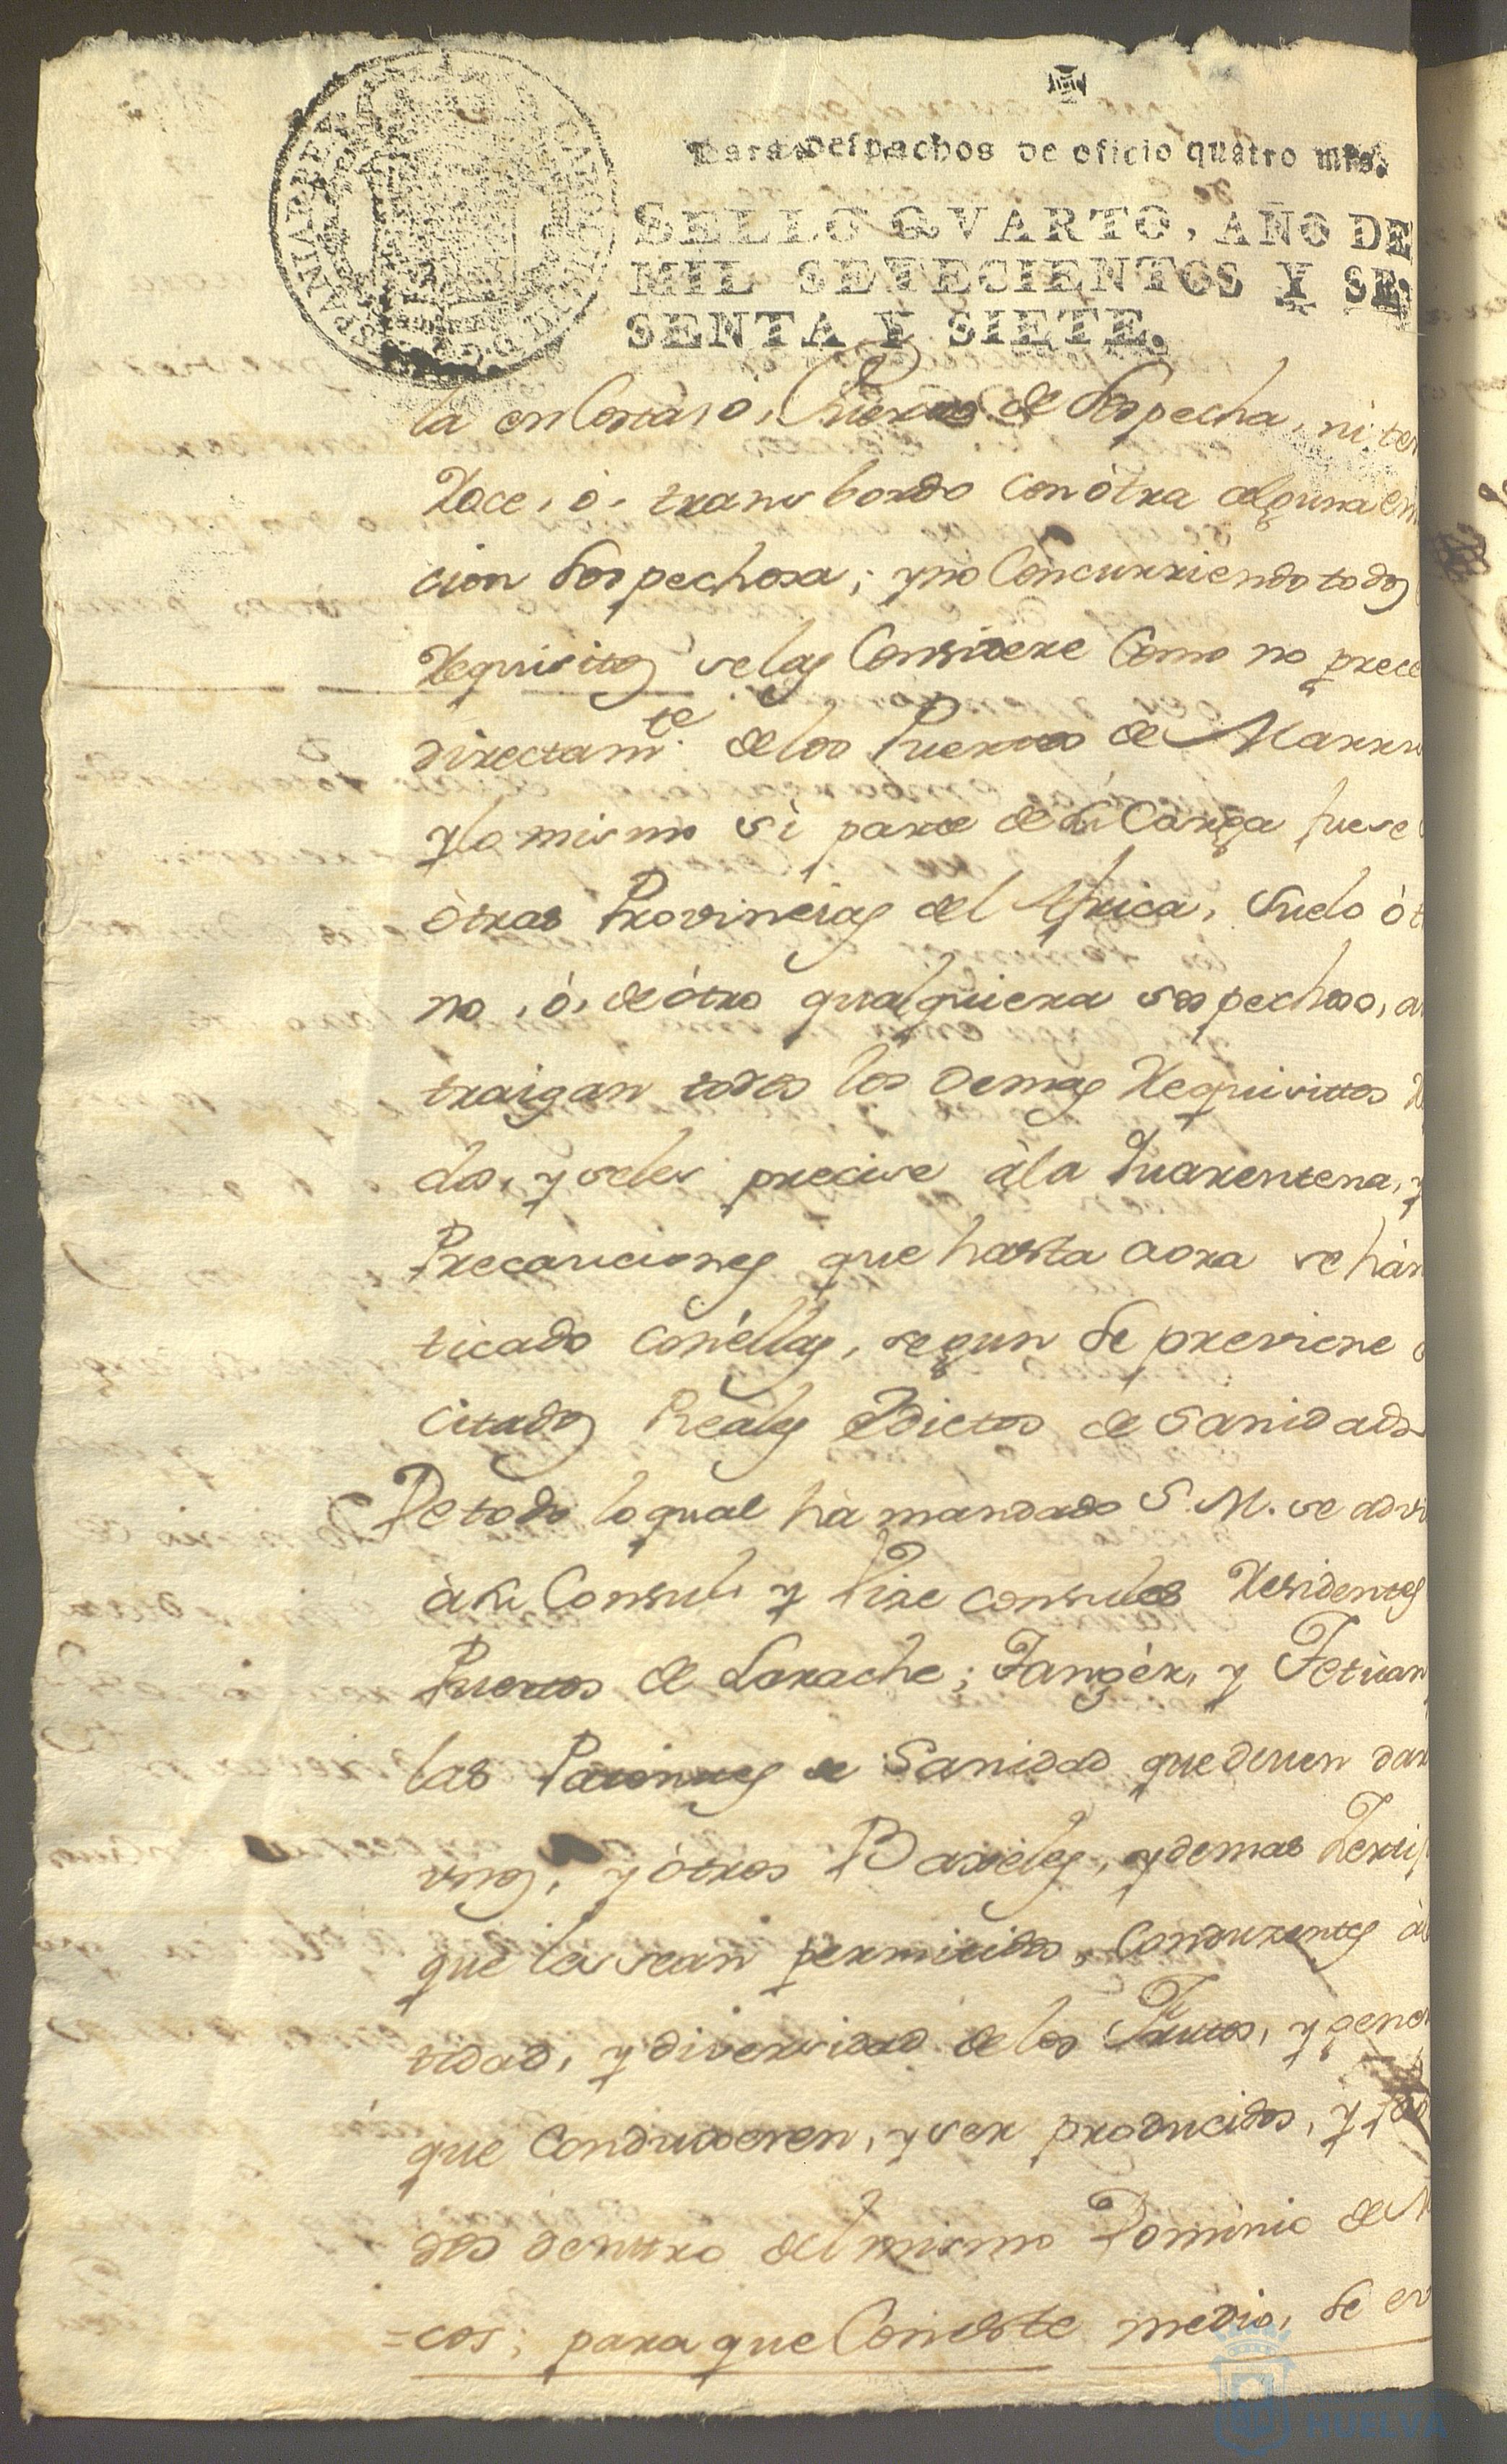 Para despachos de oficio quatro mrs.
SELLO QVARTO, AÑO DE
MIL SETECIENTOS Y SE-
SENTA Y SIETE.
la en Costa, ò, Puerto de Sospecha, ni ten
Roce, ò, transbordo con ótra alguna em
cion Sospechosa; y no Concurriendo todos
Requisitos se las Considere Como no prece
directamte. de los Puertos de Marru
y lo mismo si parte de su Carga fuese
òtras Provincias del Africa, Suelo ò t
no, ò, de ótro qualquiera sospechoso, a
traigan todos los demas Requisitos
do, y seles precise àla Quarentena, y
Precauciones que hasta aora se hàn
ticado con éllas, segun se previene
citados Reales Edictos de Sanidad
De todo lo qual hà mandado S. M. se advi
à su Consul, y Vize consules Residentes
Puertos de Larache; Tangèr, y Tetùan
las Patentes de Sanidad que deven dar
unos, y òtros Baxeles, y demas Iertif
que les sean permitidos, Conduzentes à
tidad, y diversidad de los Frutos, y gene
que Conduxeren, y ser producidos, y
dos dentro del mismo Dominio de M
=cos; para que Con este medio, se ev
HUELVA